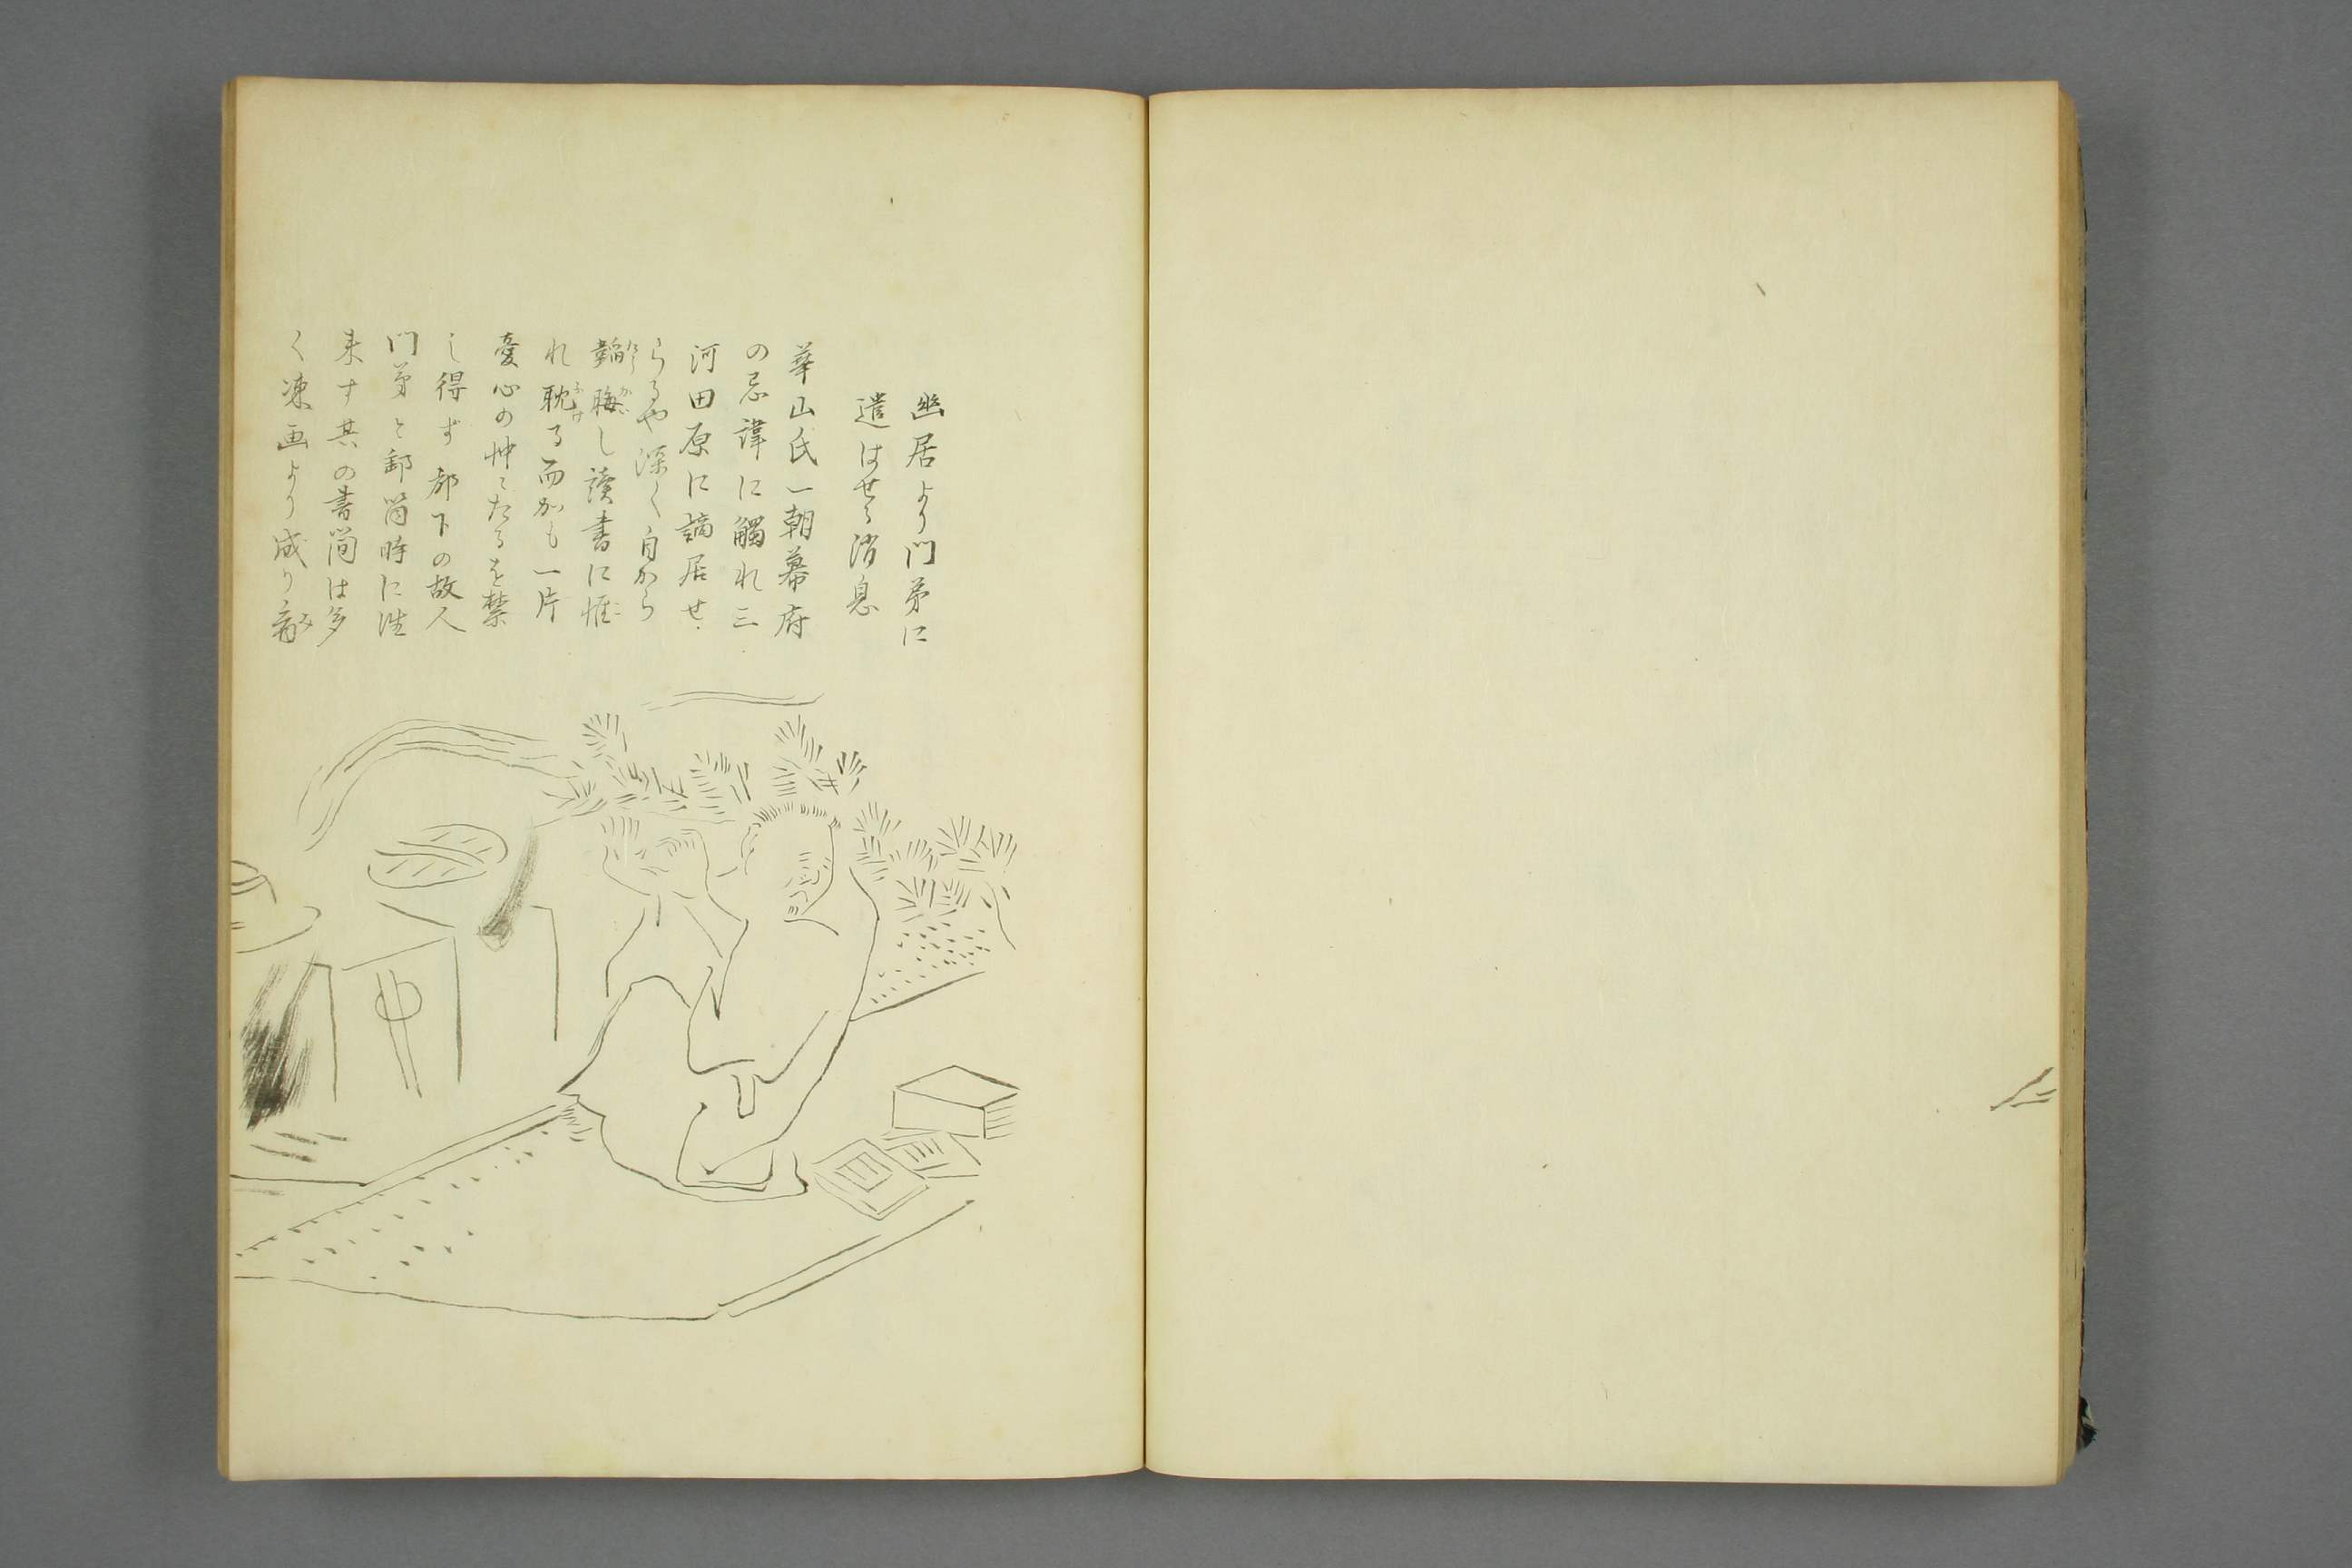 幽居より門弟に
遣はせる消息
華山氏一朝幕府
の忌諱に觸れ三
河田原に謫居せ
らるや深く自から
韜晦し讀書に惟
れ耽る而かも一片
憂心の忡々たるを禁
し得ず都下の故人
門弟と郵筒時に往
来す其の書簡は多
く凍画より成り